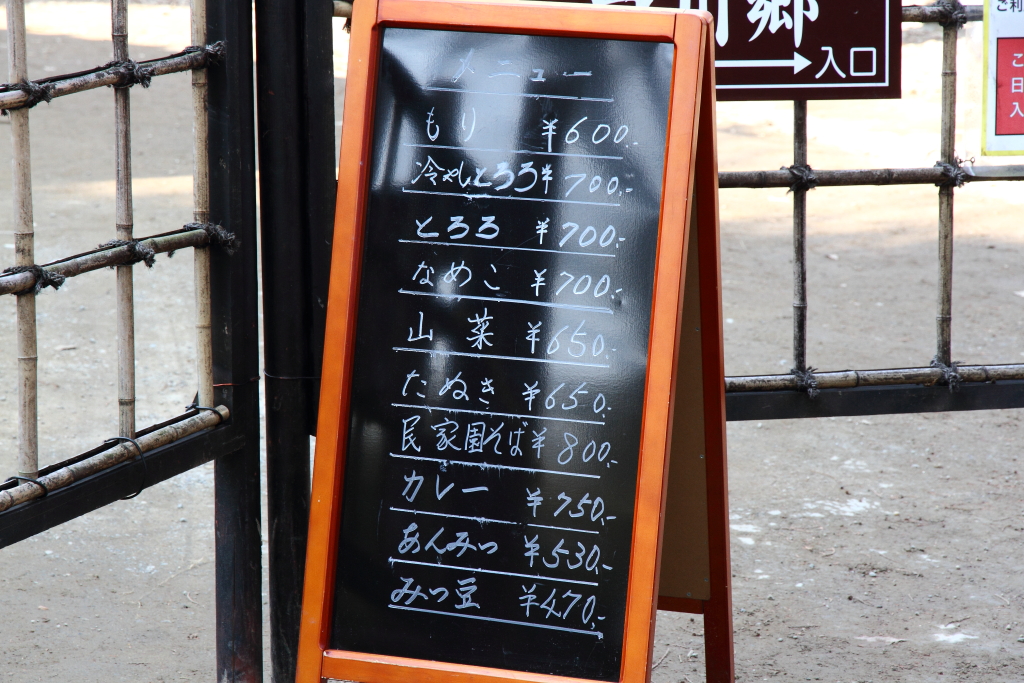 メニュー
もり ¥600.
冷やしとろろ ¥700.-
とろろ ¥700.-
なめこ ¥700.-
山菜 ¥650.-
たぬき ¥650.-
民家園そば ¥800.-
カレー ¥750.-
あんみつ ¥530.-
みつ豆 ¥470.-
郷
→入口
ご利
日
入